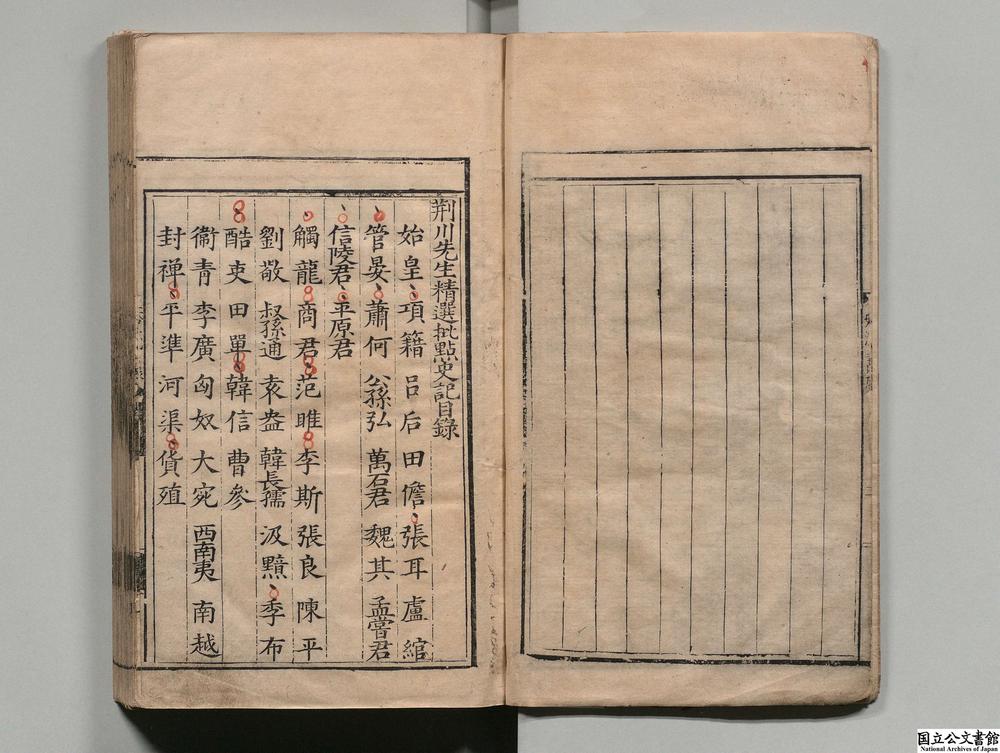 荆川先生精選批點史記目錄
始皇 項籍 呂后 田儋 張耳 盧綰
管晏 蕭何 公孫弘 萬石君 魏其 孟嘗君
信陵君 平原君
觸龍 商君 范睢 李斯 張良 陳平
劉敬 叔孫通 袁盎 韓長孺 汲黯 季布
酷吏 田單 韓信 曹參
衞青 李廣 匈奴 大宛 西南夷 南越
封禅 平準 河渠 貨殖
国立公文書館
National Archives of Japan